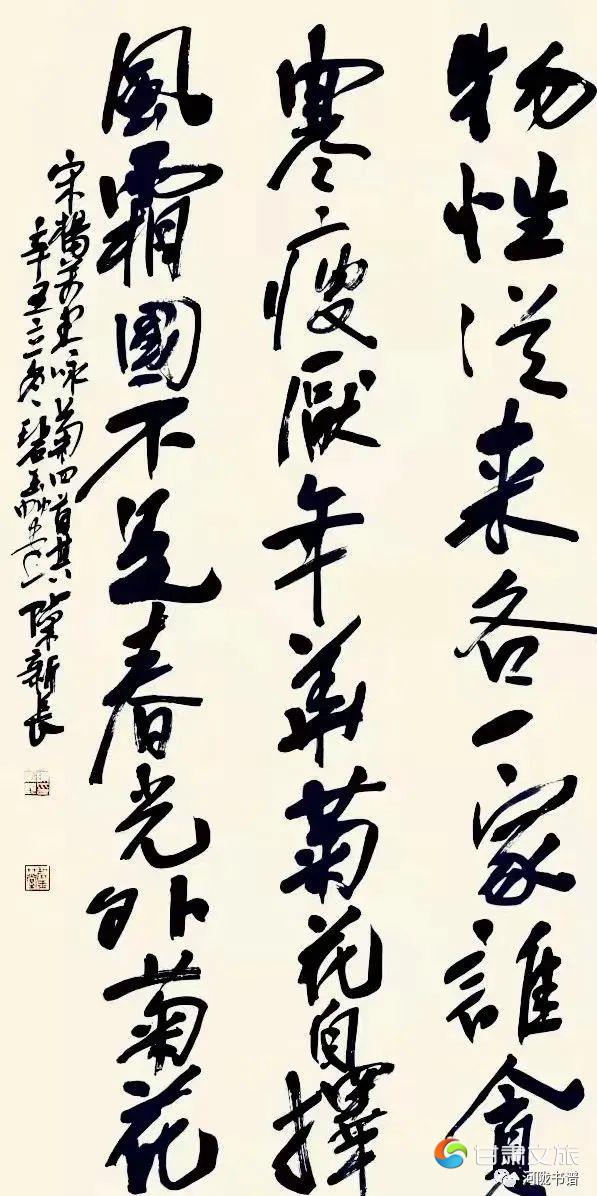 物性從来各一家誰貪
寒瘦厭年華菊花自擇
風霜國不是春光外菊花
宋楊萬里咏菊四首其一
辛丑立冬 陳新長
甘肃文旅
河陇书谱